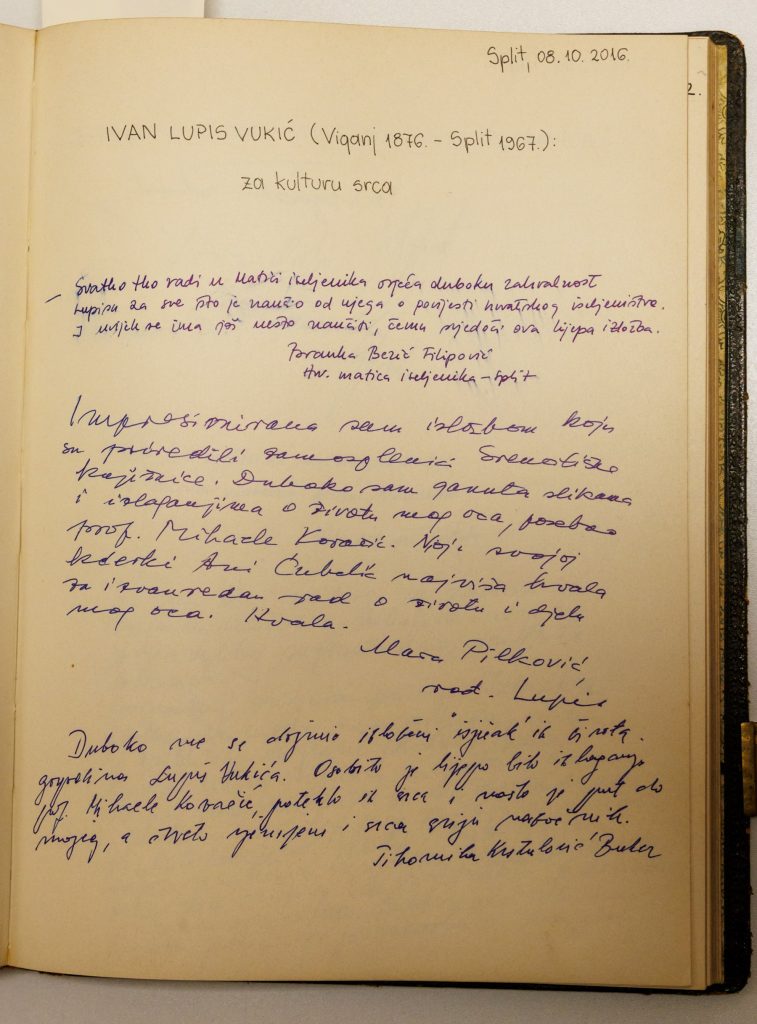 Split, 08.10.2016.
2.
IVAN LUPIS VUKIĆ (Viganj 1876. - Split 1967.):
za kulturu srca
Svatko tko radi u Matici iseljenika osjeća duboku zahvalnost
Lupisu za sve što je naučio od njega o povijesti hrvatskog iseljeništva.
I uvijek se ima još nešto naučiti, čemu svjedoči ova lijepa izložba.
Branka Bezić Filipović
Hrv. matica iseljenika - Split
Impresionirana sam izložbom koju
su priredili Sveučilišne
knjižnice. Duboko sam ganuta slikama
i izlaganjima o životu mog oca, posebno
prof. Mihaele Kovačić. Njoj i svojoj
kćerki Ani Ćubelić najviša hvala
za izvanredan rad o životu i djelu
mog oca. Hvala.
Mara Pilković
rođ. Lupis
Duboko me se dojmio izloženi "isječak" iz života
gospodina Lupis Vukića. Osobito je lijepo bilo izlaganje
prof. Mihaele Kovačić, poteklo iz srca i našlo je put do
mojeg, a i srca nazočnih.
Tihomila Krstulović